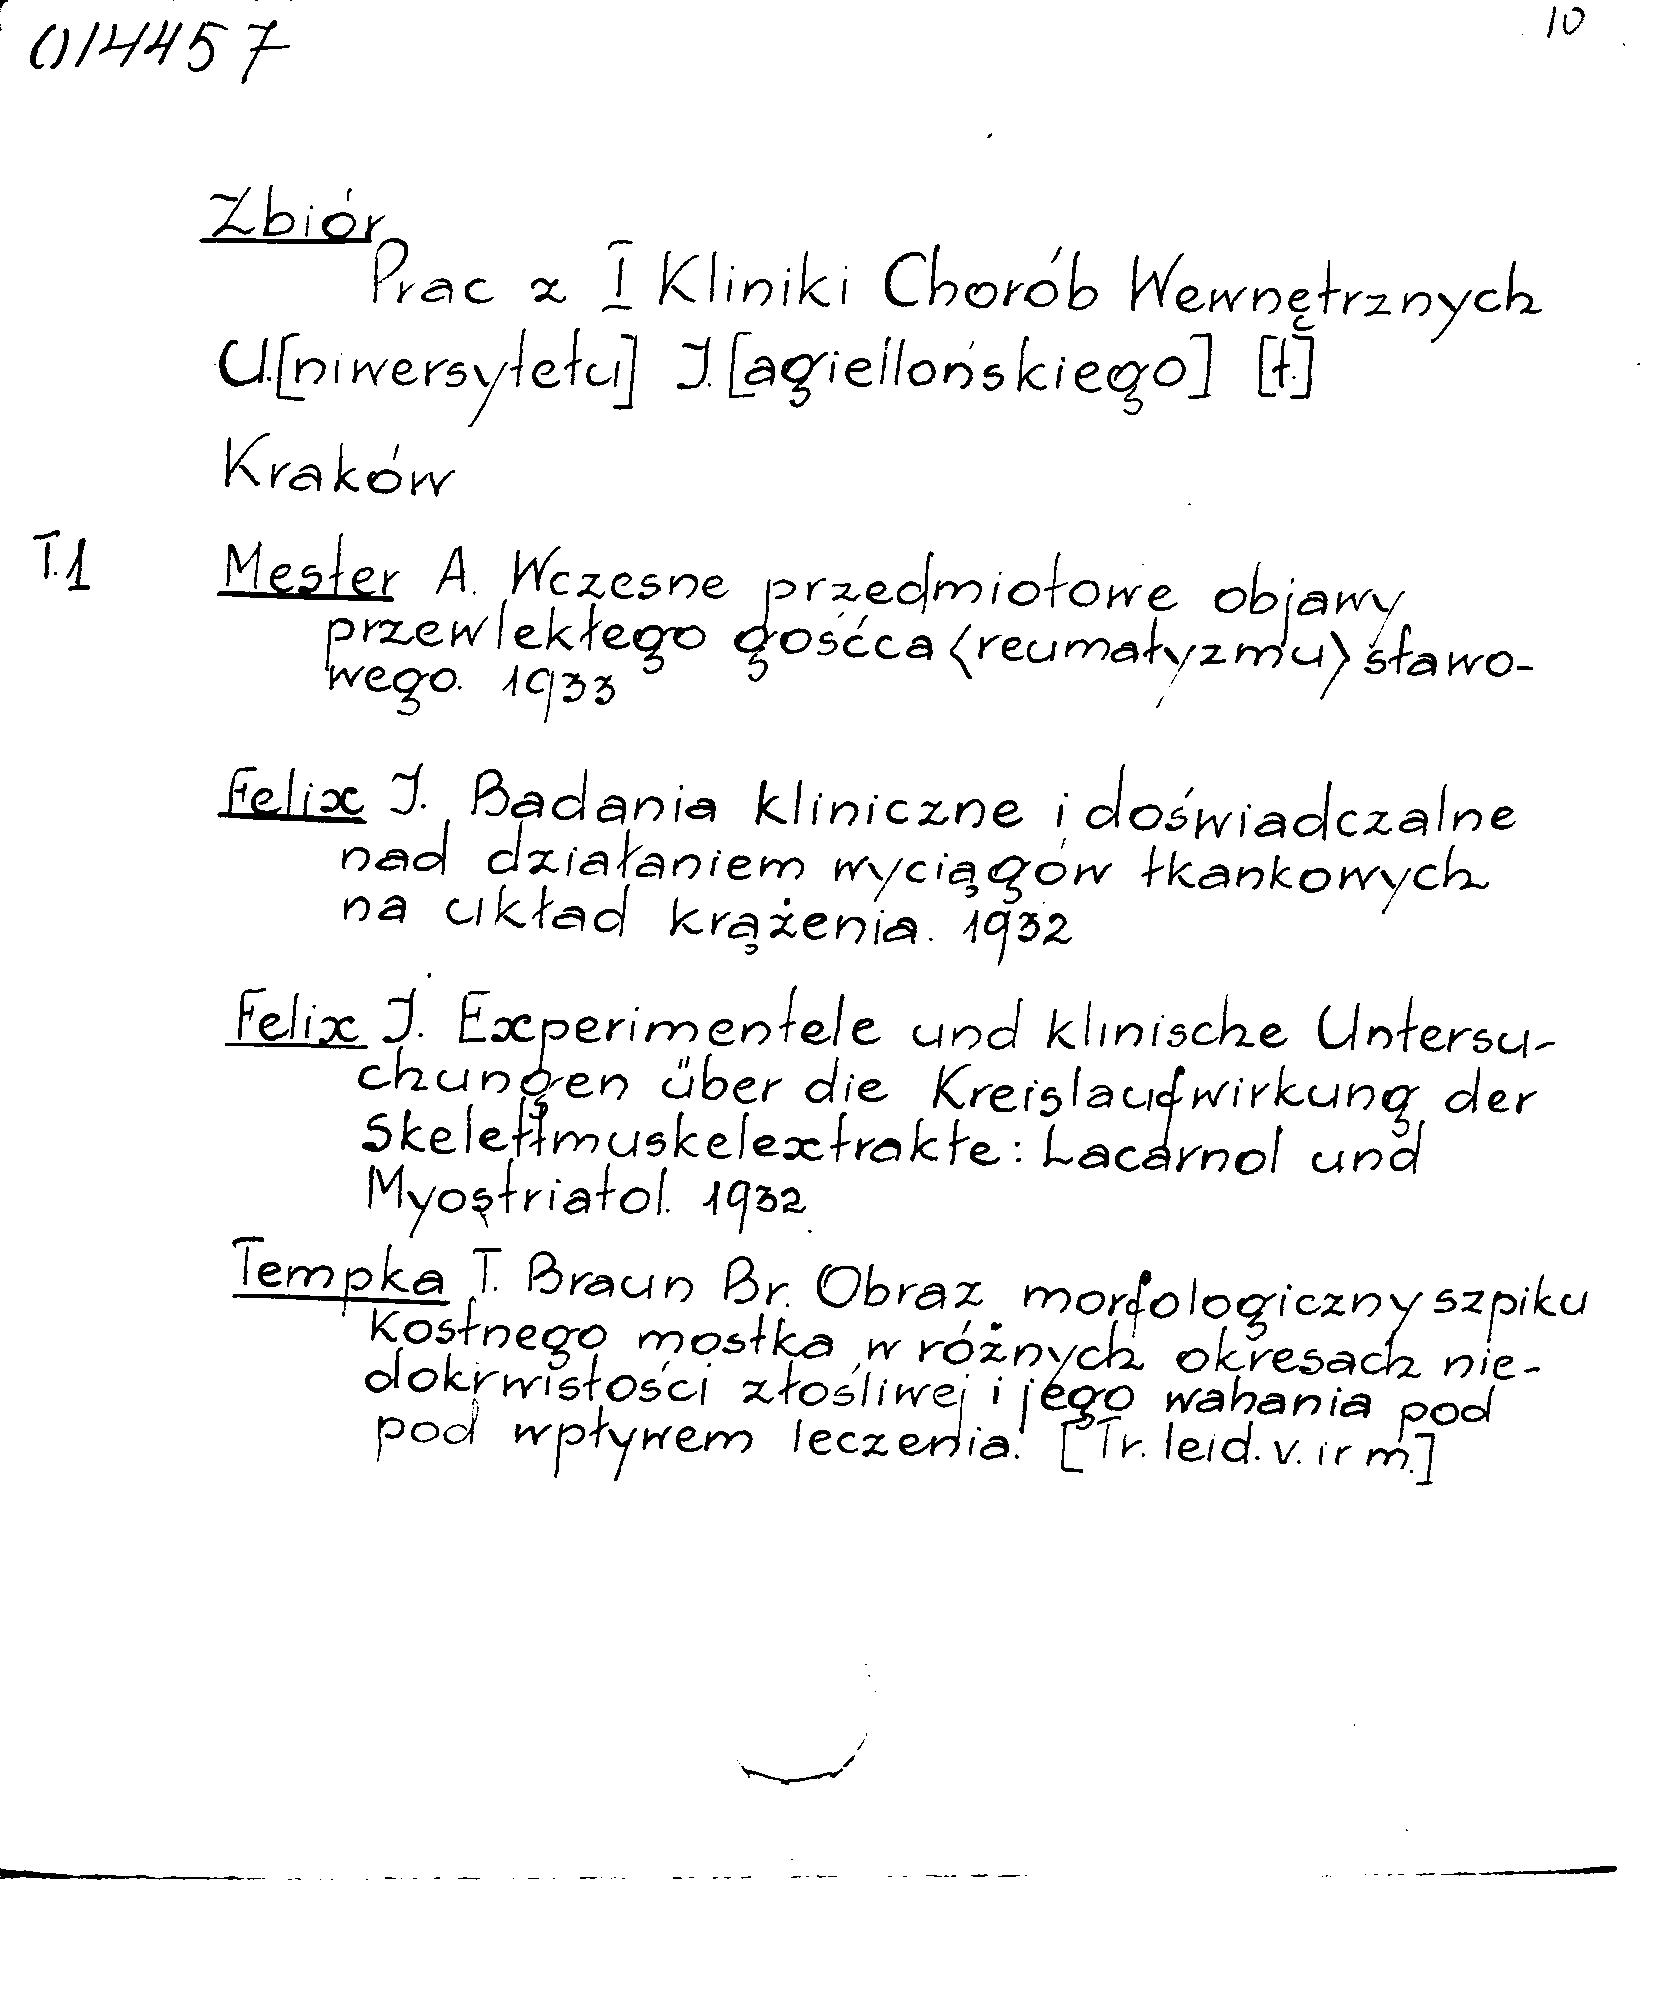 014457
10
Zbiór
Prac z I Kliniki Chorób Wewnętrznych
U.[niwersytetu] J.[agiellońskiego] [t.]
Kraków
T.1
Mester A. Wczesne przedmiotowe objawy
przewlekłego gośćca <reumatyzmu> stawo-
wego. 1933
Felix J. Badania kliniczne i doświadczalne
nad działaniem wyciągów tkankowych
na układ krążenia. 1932
Felix J. Experimentele und klinische Untersu-
chungen über die Kreislaufwirkung der
Skelettmuskelextrakte: Lacarnol und
Myostriatol. 1932
Tempka T. Braun Br. Obraz morfologiczny szpiku
kostnego mostka w różnych okresach nie-
dokrwistości złośliwej i jego wahania pod
pod wpływem leczenia. [Tr. leid. v. ir m.]